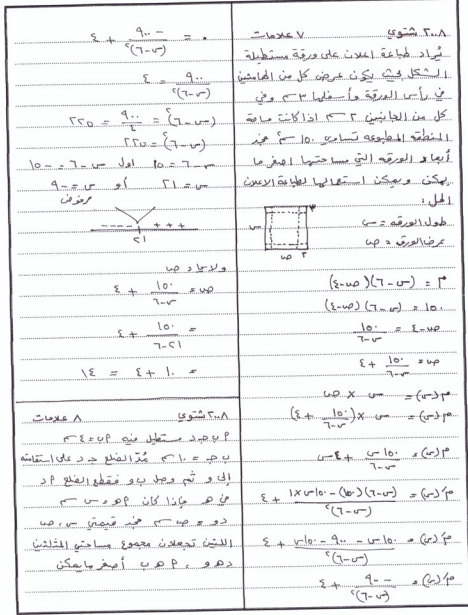 ٢٠٠٨ شتوي ٧ علامات
يُراد طباعة اعلان على ورقة مستطيلة
الشكل بحيث يكون عرض كل من الهامشين
في رأس الورقة وأسفلها ٣ سم وفي
كل من الجانبين ٢ سم اذا كانت مساحة
المنطقة المطبوعة تساوي ١٥٠ سم٢ جد
أبعاد الورقة التي مساحتها اصغر ما
يمكن ويمكن استعمالها لطباعة الاعلان
الحل :
طول الورقة = س
عرض الورقة = ص
٣
س
٢
ص
م = (س - ٦)(ص - ٤)
١٥٠ = (س - ٦)(ص - ٤)
ص - ٤ = ١٥٠ / (س - ٦)
ص = ١٥٠ / (س - ٦) + ٤
م(س) = س × ص
م(س) = س × (١٥٠ / (س - ٦) + ٤)
م(س) = ١٥٠س / (س - ٦) + ٤س
م'(س) = (س - ٦)(١٥٠) - ١٥٠س × ١ / (س - ٦)٢ + ٤
م'(س) = ١٥٠س - ٩٠٠ - ١٥٠س / (س - ٦)٢ + ٤
م'(س) = - ٩٠٠ / (س - ٦)٢ + ٤
٠ = - ٩٠٠ / (س - ٦)٢ + ٤
٩٠٠ / (س - ٦)٢ = ٤
(س - ٦)٢ = ٩٠٠ / ٤ = ٢٢٥
(س - ٦)٢ = ٢٢٥
س - ٦ = ١٥ او س - ٦ = - ١٥
س = ٢١ أو س = - ٩
مرفوض
---- +++
٢١
ولايجاد ص
ص = ١٥٠ / (س - ٦) + ٤
= ١٥٠ / (٢١ - ٦) + ٤
= ١٠ + ٤ = ١٤
٢٠٠٨ شتوي ٨ علامات
م ب جـ د مستطيل فيه م ب = ٤ سم
ب جـ = ١٠ سم مُدّ الضلع جـ د على استقامته
إلى و ثم وصل ب و فقطع الضلع م د
في هـ فإذا كان م هـ = س سم
د و = ص سم جد قيمتي س، ص
اللتين تجعلان مجموع مساحتي المثلثين
د هـ و ، م هـ ب أصغر ما يمكن